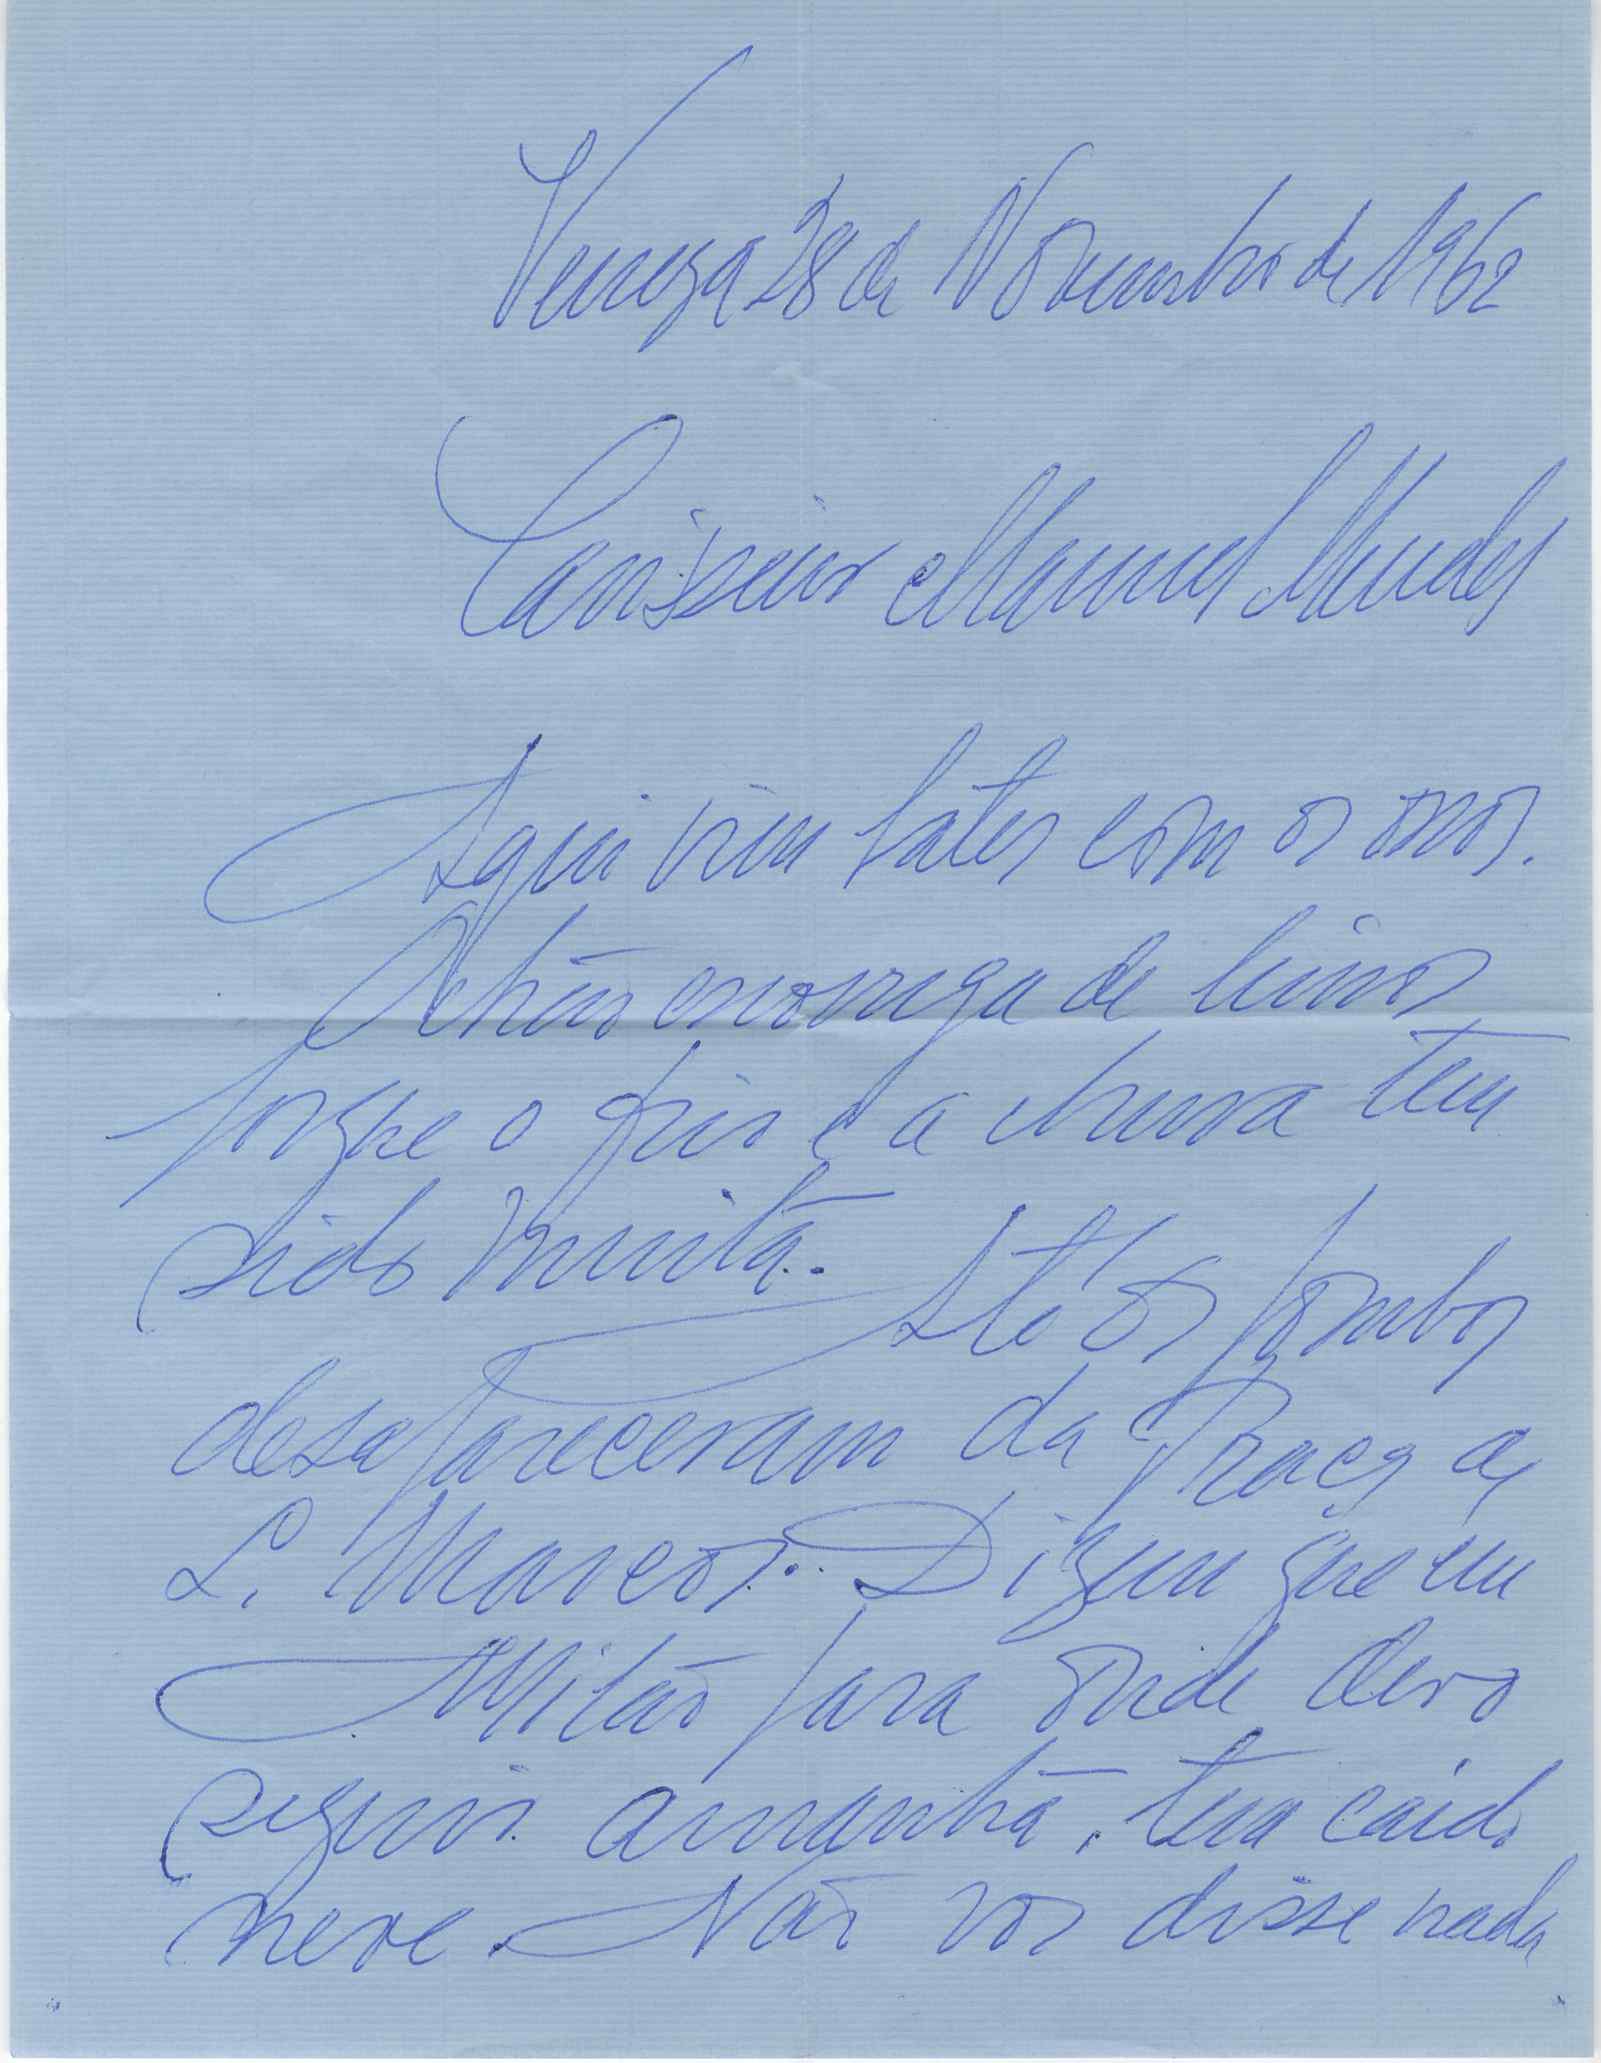 Veneza 28 de Novembro de 1962
Caríssimo Manuel Mendes
Aqui vim bater com os ossos.
Achão enorruga de
porque o frio e a chuva tem
sido muita. Até os pombos
desapareceram da Praça de
S. Marcos. Dizem que em
Milão para onde devo
seguir amanhã, tem caido
neve. Não vos disse nada